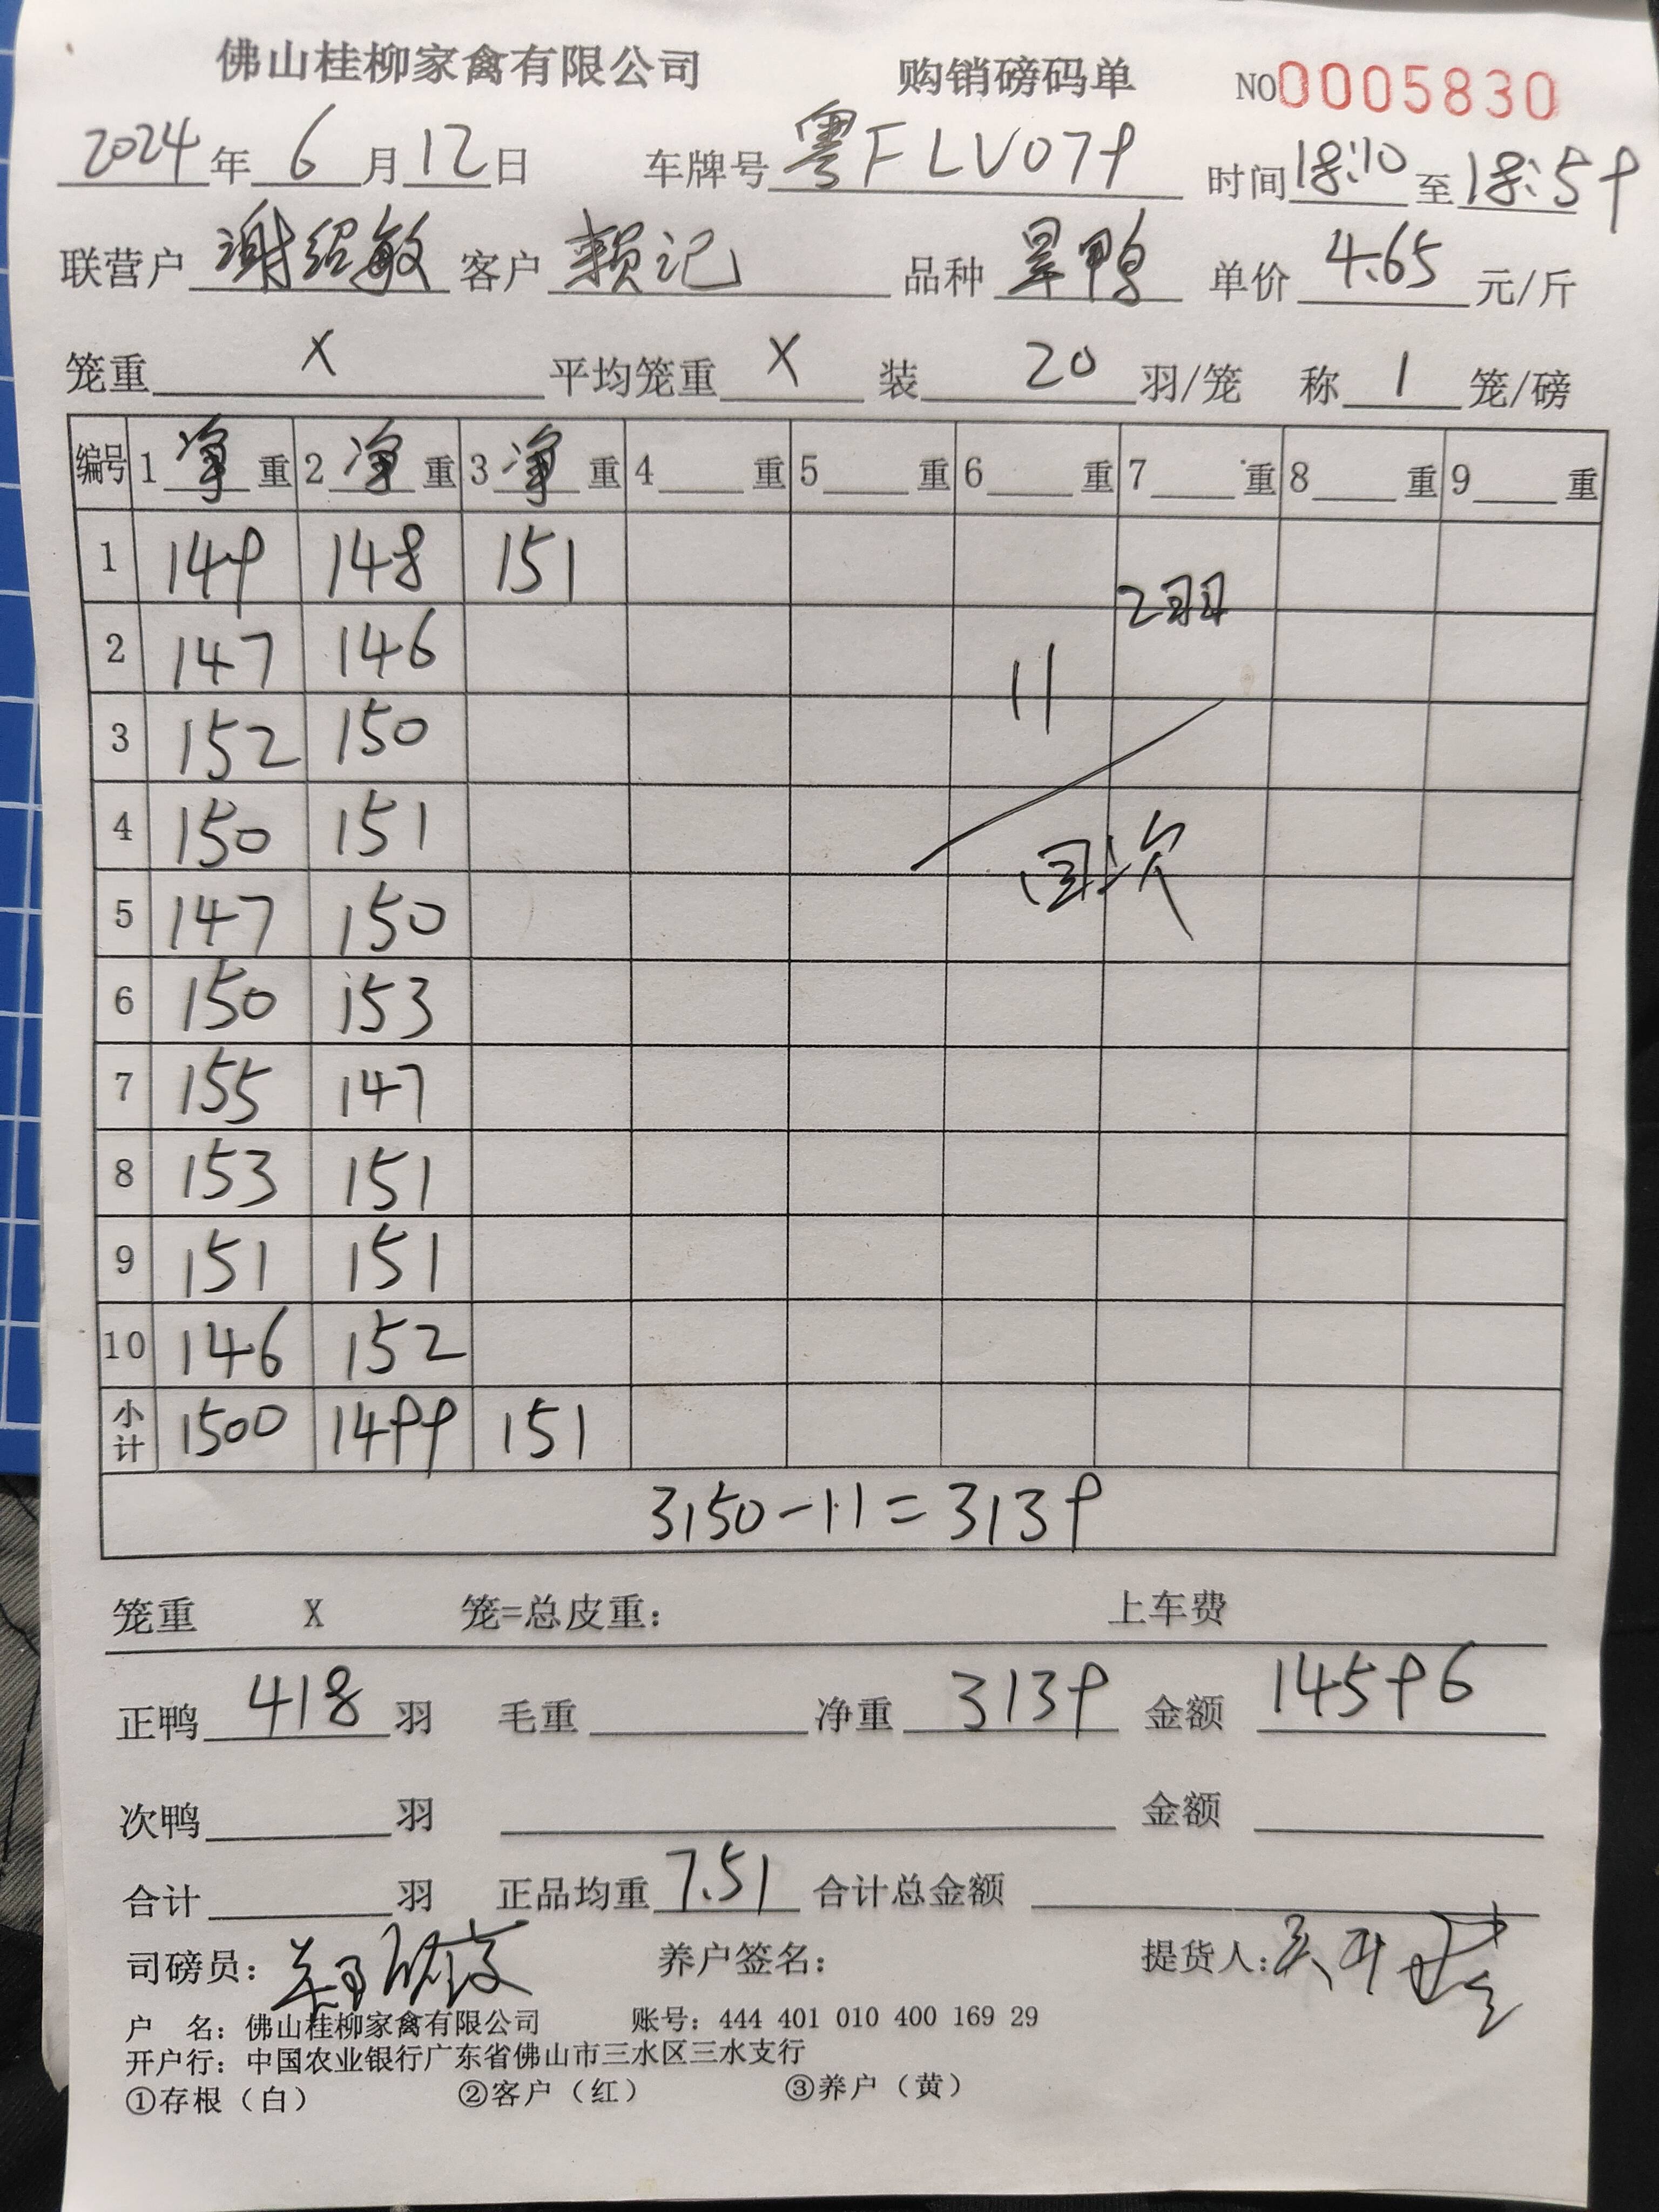 佛山桂柳家禽有限公司 购销磅码单 NO0005830
2024年6月12日 车牌号粤FLV079 时间18:10至18:59
联营户谢绍敏 客户赖记 品种旱鸭 单价4.65元/斤
笼重X 平均笼重X 装20羽/笼 称1笼/磅
编号 1净重 2净重 3净重 4重 5重 6重 7重 8重 9重
1 149 148 151
2羽
2 147 146 11
3 152 150
4 150 151
回次
5 147 150
6 150 153
7 155 147
8 153 151
9 151 151
10 146 152
小计 1500 1499 151
3150-11=3139
笼重 X 笼=总皮重: 上车费
正鸭418羽 毛重 净重3139 金额14596
次鸭 羽 金额
合计 羽 正品均重7.51 合计总金额
司磅员: 养户签名: 提货人:
户 名: 佛山桂柳家禽有限公司 账号: 444 401 010 400 169 29
开户行: 中国农业银行广东省佛山市三水区三水支行
①存根（白） ②客户（红） ③养户（黄）